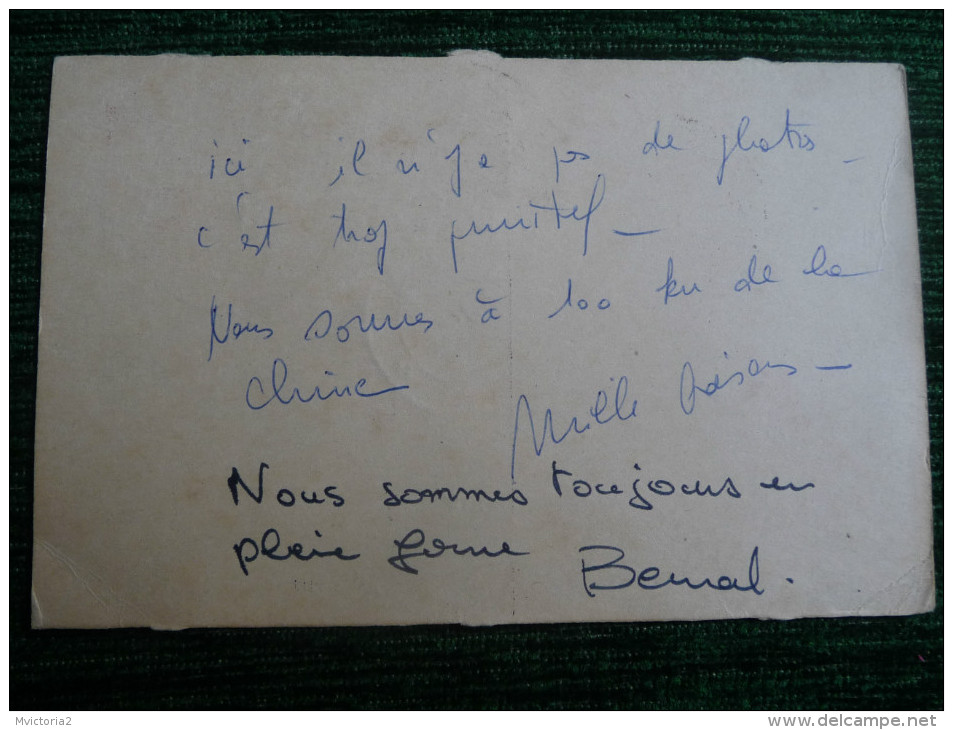 ici il n'y a pas de photos -
c'est trop primitif -
Nous sommes à 100 km de la
Chine
Mille baisers -
Nous sommes toujours en
pleine forme
Bernal.
Mvictoria2
http://www.delcampe.net